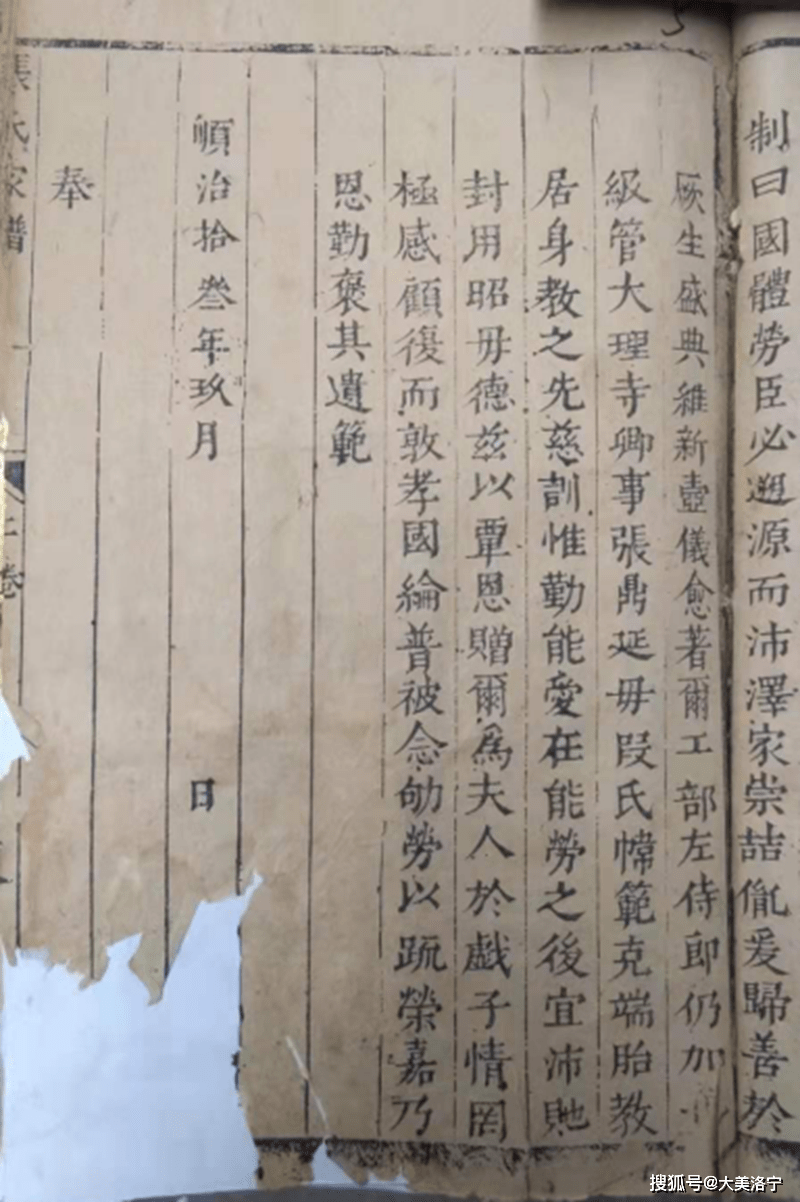 制曰國體勞臣必遡源而沛澤家崇喆胤爰歸善於
厥生盛典維新壼儀愈著爾工部左侍郎仍加一
級管大理寺卿事張鼎延母段氏幃範克端胎教
居身教之先慈訓惟勤能愛在能勞之後宜沛貤
封用昭母德茲以覃恩贈爾為夫人於戲子情罔
極感顧復而敦孝國綸普被念劬勞以疏榮嘉乃
恩勤褒其遺範
順治拾叁年玖月 日
奉
張氏家譜 卷
搜狐号@大美洛宁